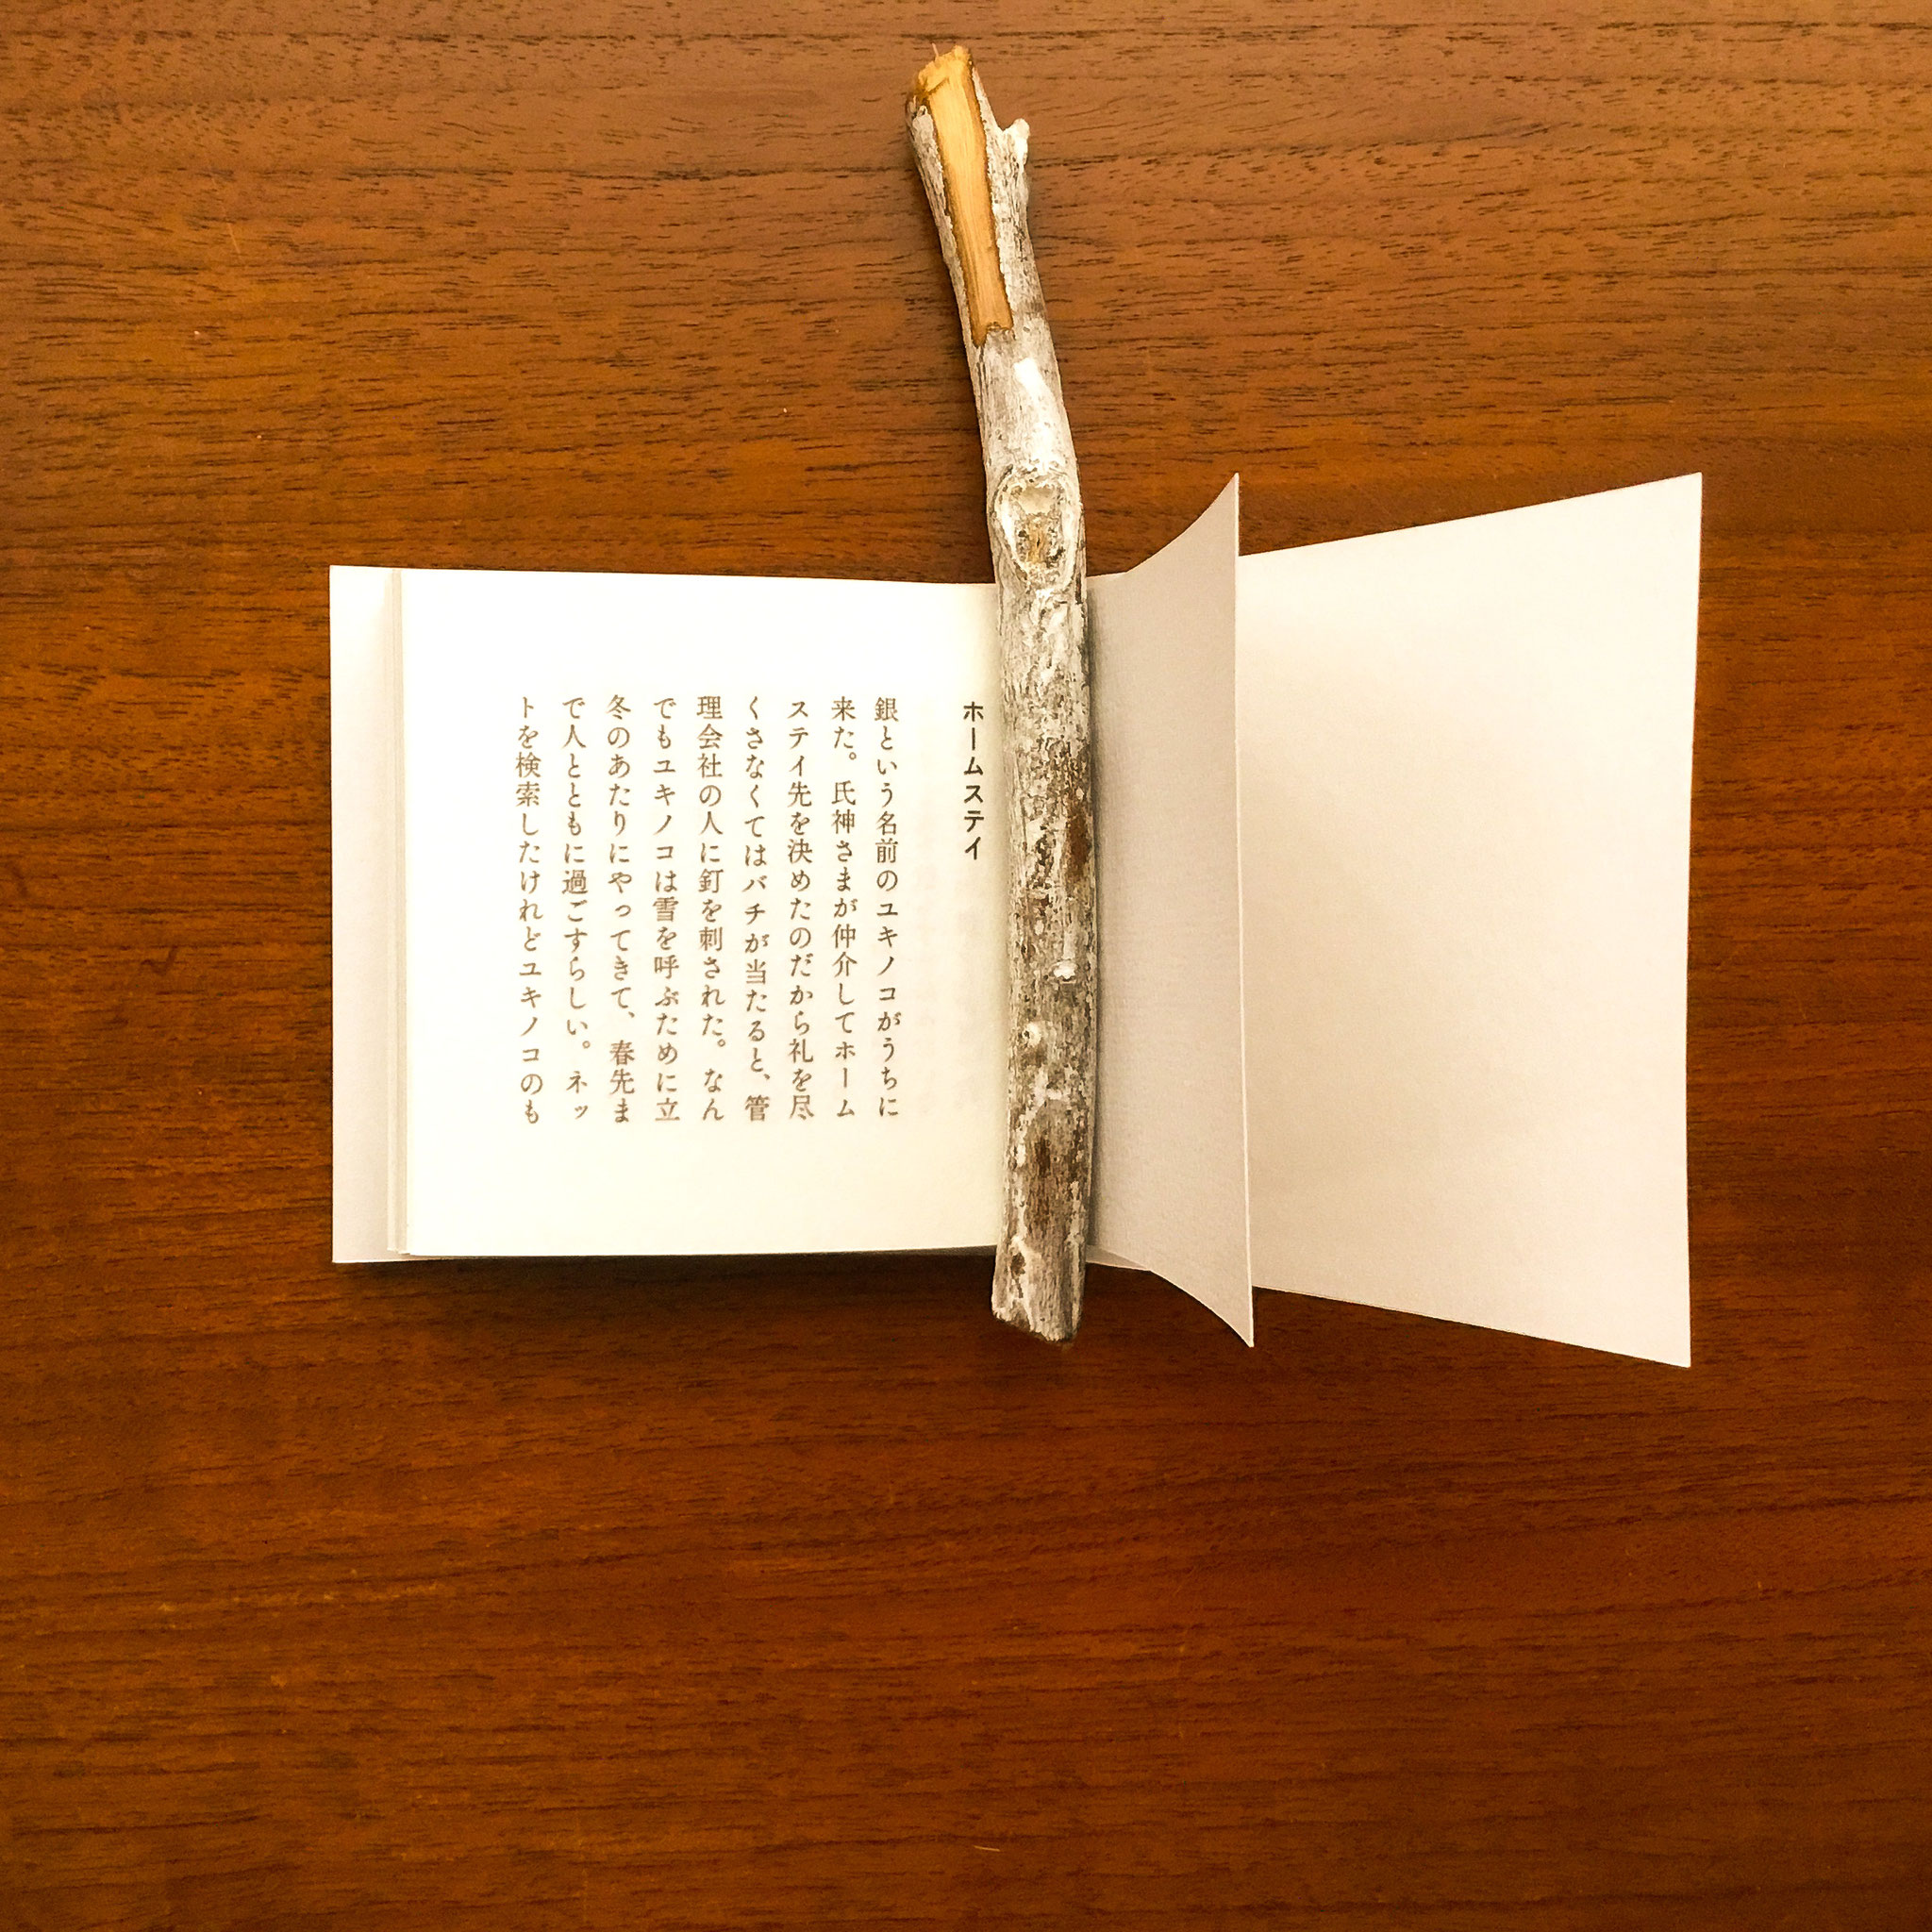 ホームステイ
銀という名前のユキノコがうちに
来た。氏神さまが仲介してホーム
ステイ先を決めたのだから礼を尽
くさなくてはバチが当たると、管
理会社の人に釘を刺された。なん
でもユキノコは雪を呼ぶために立
冬のあたりにやってきて、春先ま
で人とともに過ごすらしい。ネッ
トを検索したけれどユキノコのも